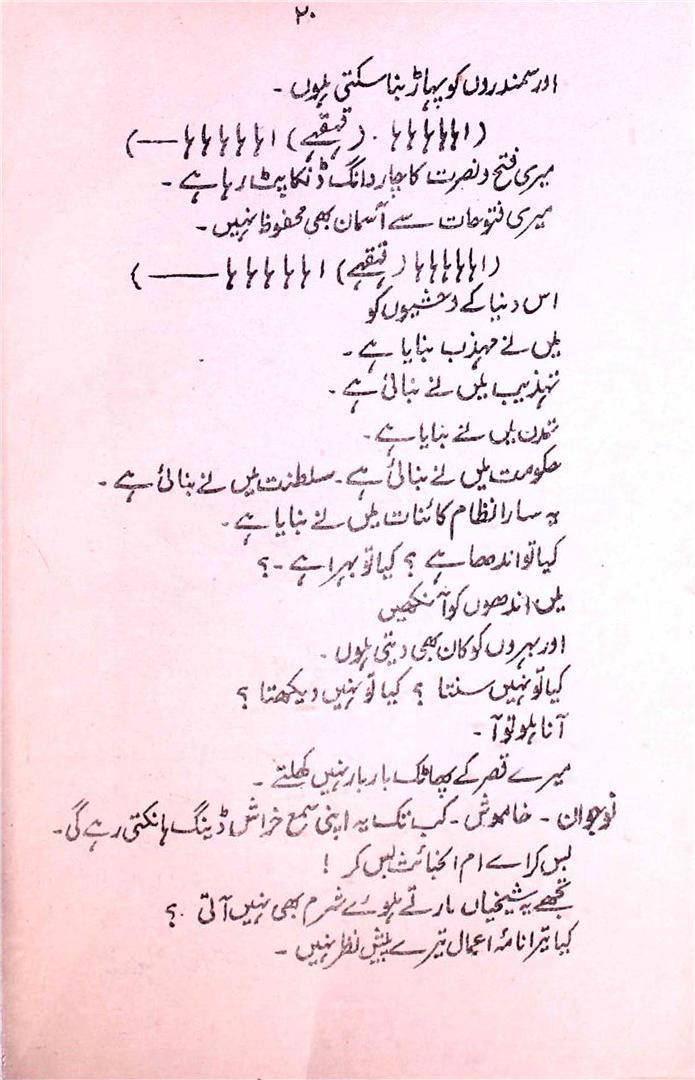 ۲۰
اور سمندروں کو پہاڑ بنا سکتی ہوں ۔
(اہاہاہاہاہاہا ۔ (قہقہے) اہاہاہاہاہاہا ــــ)
میری فتح و نصرت کا چار دانگ ڈنکا پٹ رہا ہے ۔
میری فتوحات سے آسمان بھی محفوظ نہیں ۔
(اہاہاہاہاہاہا (قہقہے) اہاہاہاہاہاہا ــــــــ)
اس دنیا کے وحشیوں کو
میں نے مہذب بنایا ہے ۔
تہذیب میں نے بنائی ہے ۔
تمدن میں نے بنایا ہے ۔
حکومت میں نے بنائی ہے ۔ سلطنت میں نے بنائی ہے ۔
یہ سارا نظام کائنات میں نے بنایا ہے ۔
کیا تو اندھا ہے ؟ کیا تو بہرا ہے ۔ ؟
میں اندھوں کو آنکھیں
اور بہروں کو کان بھی دیتی ہوں ۔
کیا تو نہیں سنتا ؟ کیا تو نہیں دیکھتا ؟
آنا ہو تو آ ۔
میرے قصر کے پھاٹک بار بار نہیں کھلتے ۔
نوجوان ۔ خاموش ۔ کب تک یہ اپنی سمع خراش ڈینگ ہانکتی رہے گی ۔
بس کر اے ام الخبائث بس کر !
تجھے یہ شیخیاں مارتے ہوئے شرم بھی نہیں آتی ؟
کیا تیرا نامۂ اعمال تیرے پیش نظر نہیں ۔